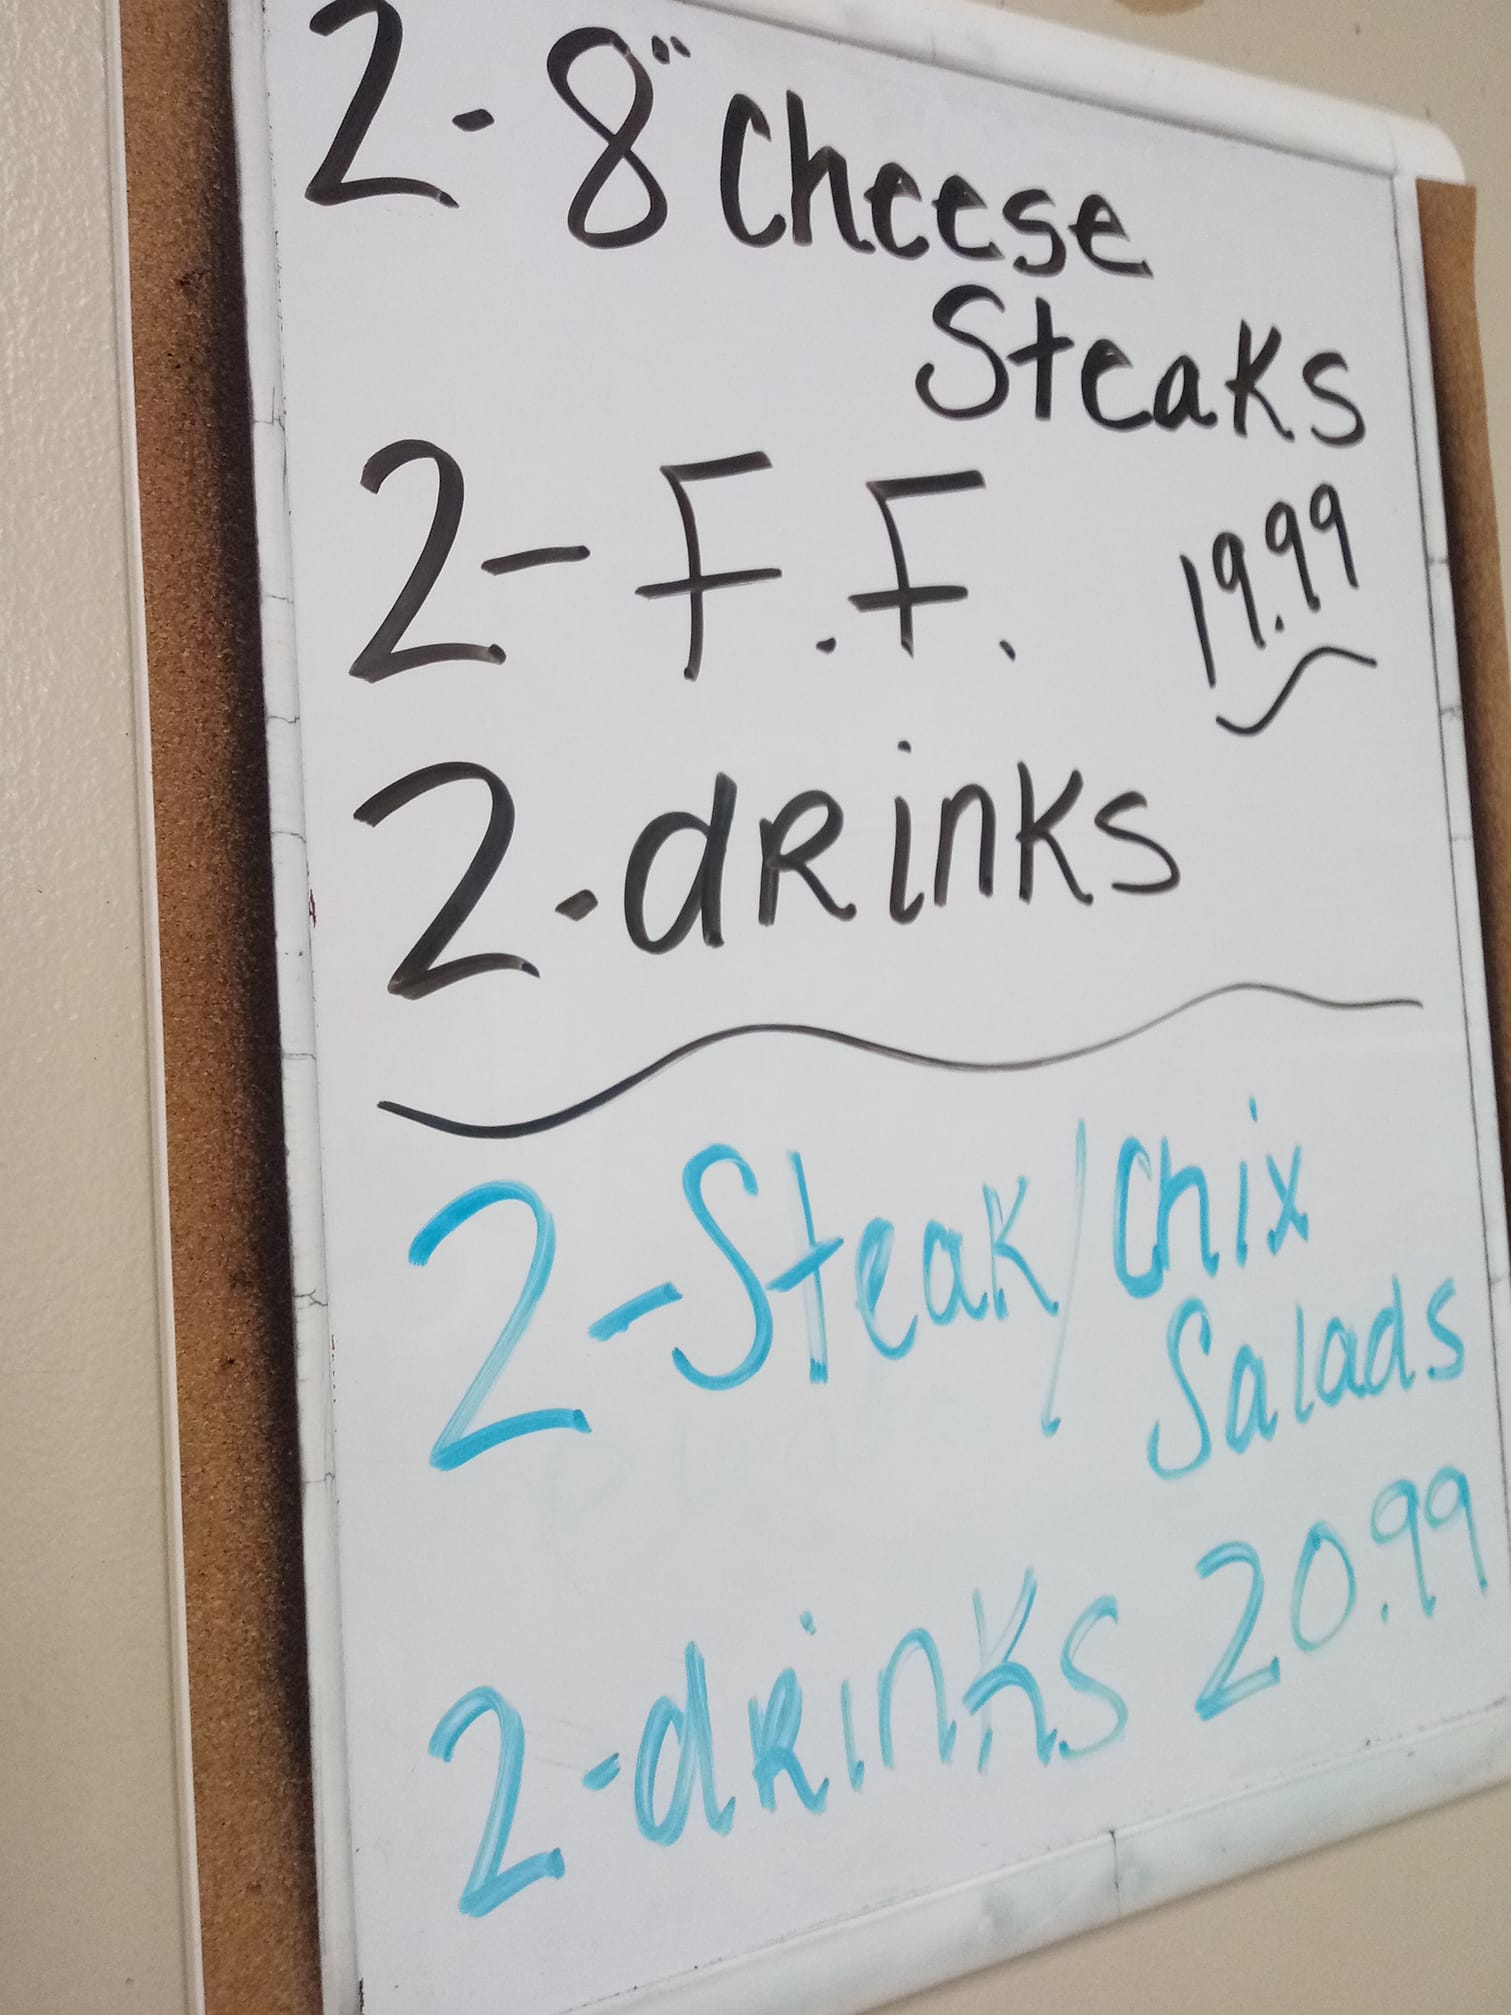 2-8" Cheese
Steaks
2-F.F. 19.99
2-dRinks
2-Steak/Chix
Salads
2-dRinks 20.99